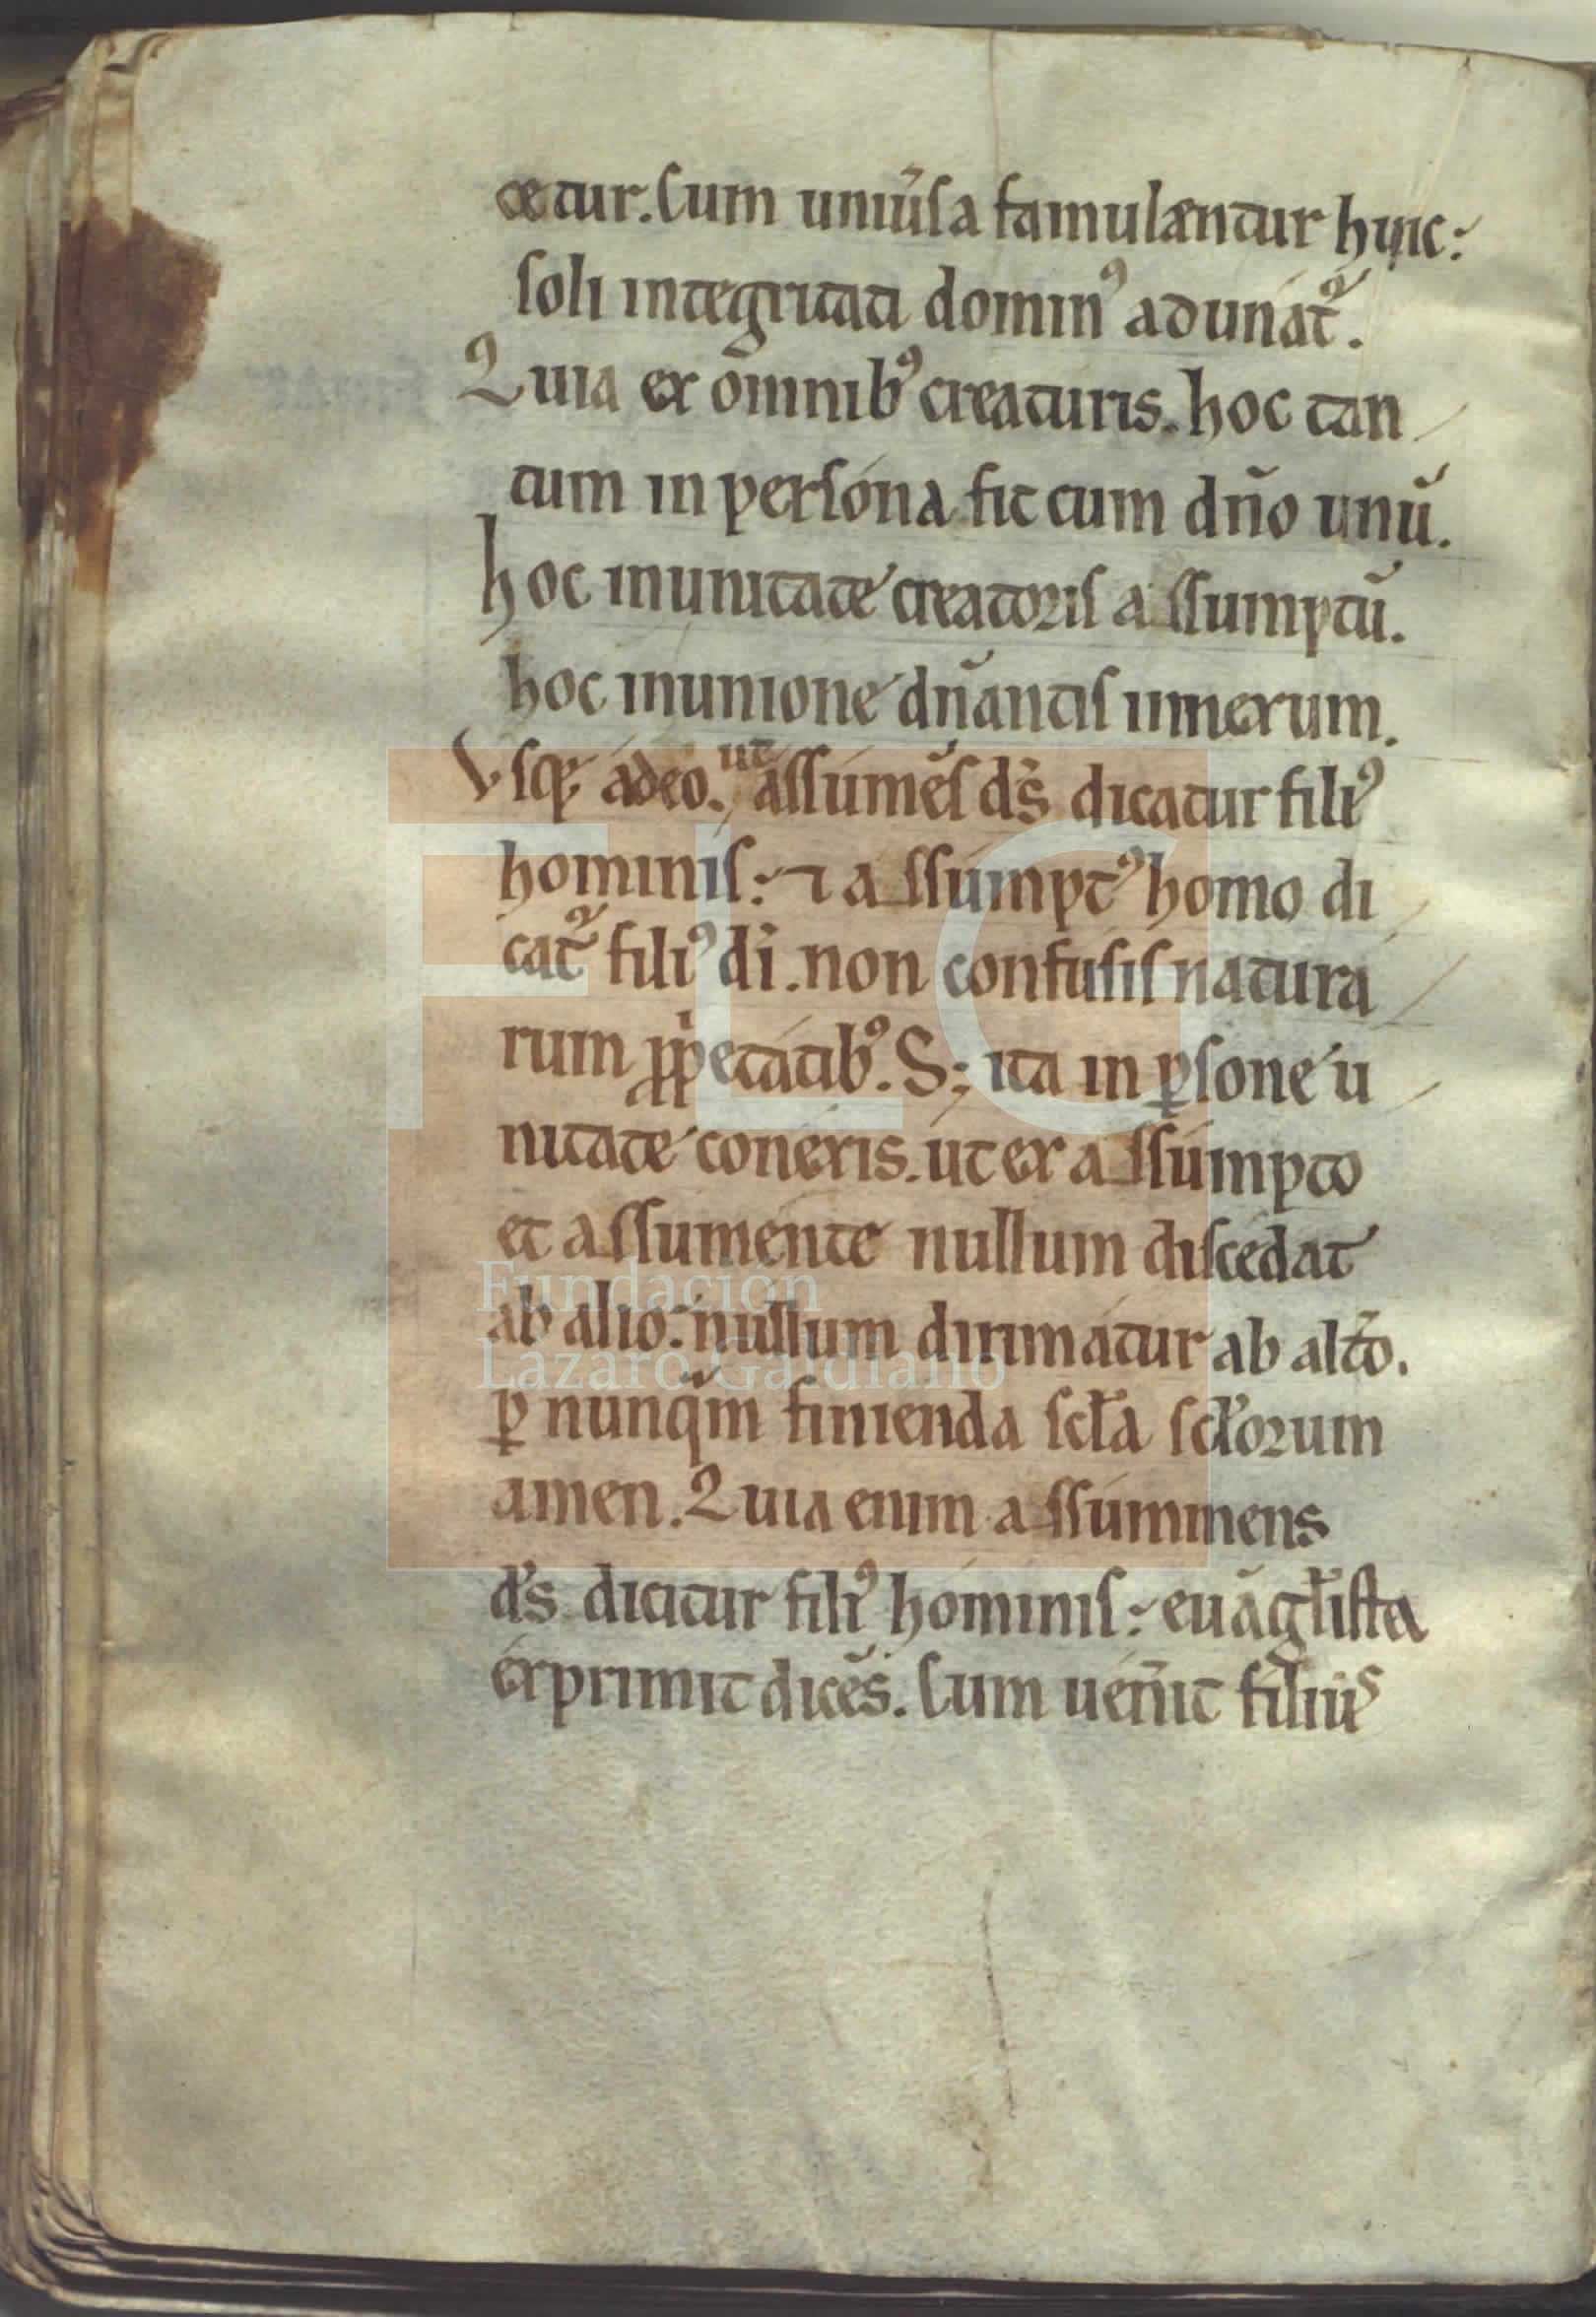 cetur. Cum uniu͛sa famulentur huic:
soli integritati domin᷒ adunat᷑.
Quia ex om̄nib᷒ creaturis. hoc tan
tum in persona fit cum dn̄o unū.
hoc inunitate creatoris assumptū.
hoc inunione dn̄antis innexum.
Vsq; adeo. ut assumēs ds̄ dicatur fili᷒
hominis: ⁊ assumpt᷒ homo di
cat᷑ fili᷒ dī. non confusis natura
rum ꝓpͥetatib᷒. S; ita in ꝑsone u
nitate conexis. ut ex assumpto
et assumente nullum discedat
ab alio: nullum dirimatur ab alt̄o.
ꝑ nunqͣm finienda scła scłorum
amen. Quia enim assummens
ds̄ dicitur fili᷒ hominis: euāgłista
exprimit dicēs. Cum uen̄it filiuˢ
FLG
Fundación
Lázaro Galdiano